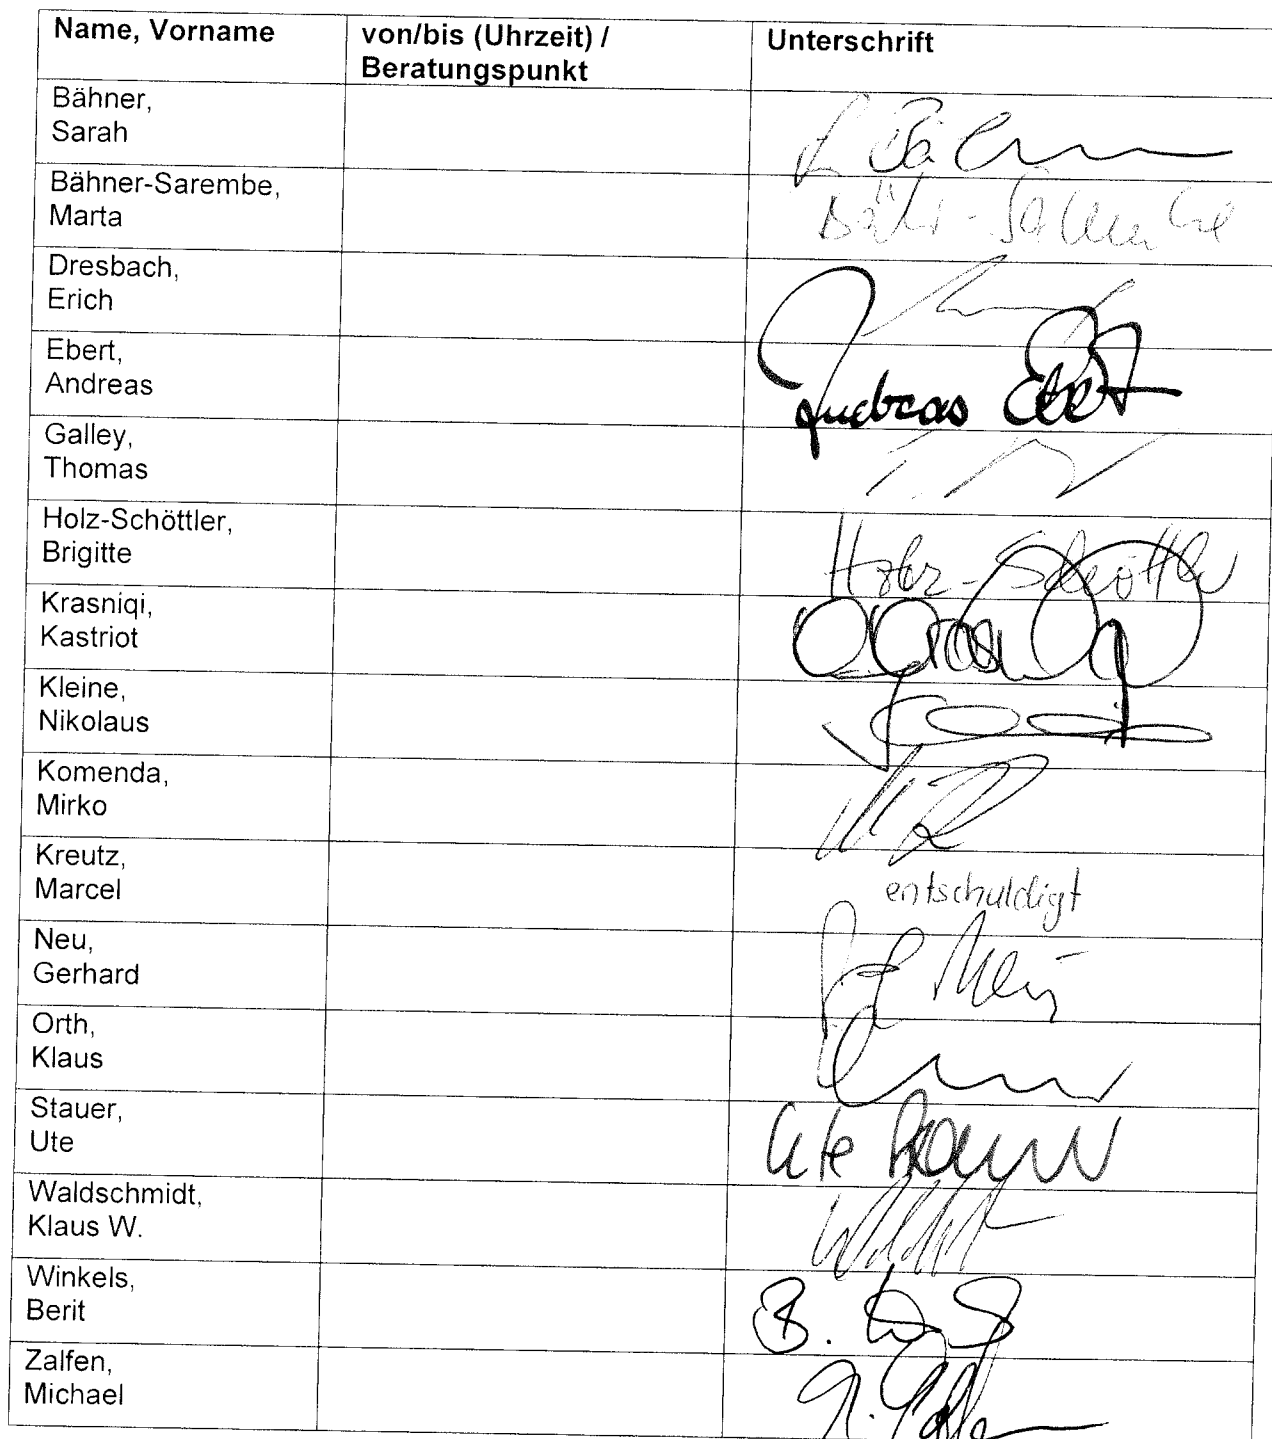 Name, Vorname
von/bis (Uhrzeit) /
Beratungspunkt
Unterschrift
Bähner,
Sarah
Bähner-Sarembe,
Marta
Dresbach,
Erich
Ebert,
Andreas
Andreas Ebert
Galley,
Thomas
Holz-Schöttler,
Brigitte
Holz-Schöttler
Krasniqi,
Kastriot
Kleine,
Nikolaus
Komenda,
Mirko
Kreutz,
Marcel
entschuldigt
Neu,
Gerhard
Orth,
Klaus
Stauer,
Ute
Ute
Waldschmidt,
Klaus W.
Winkels,
Berit
B.
Zalfen,
Michael